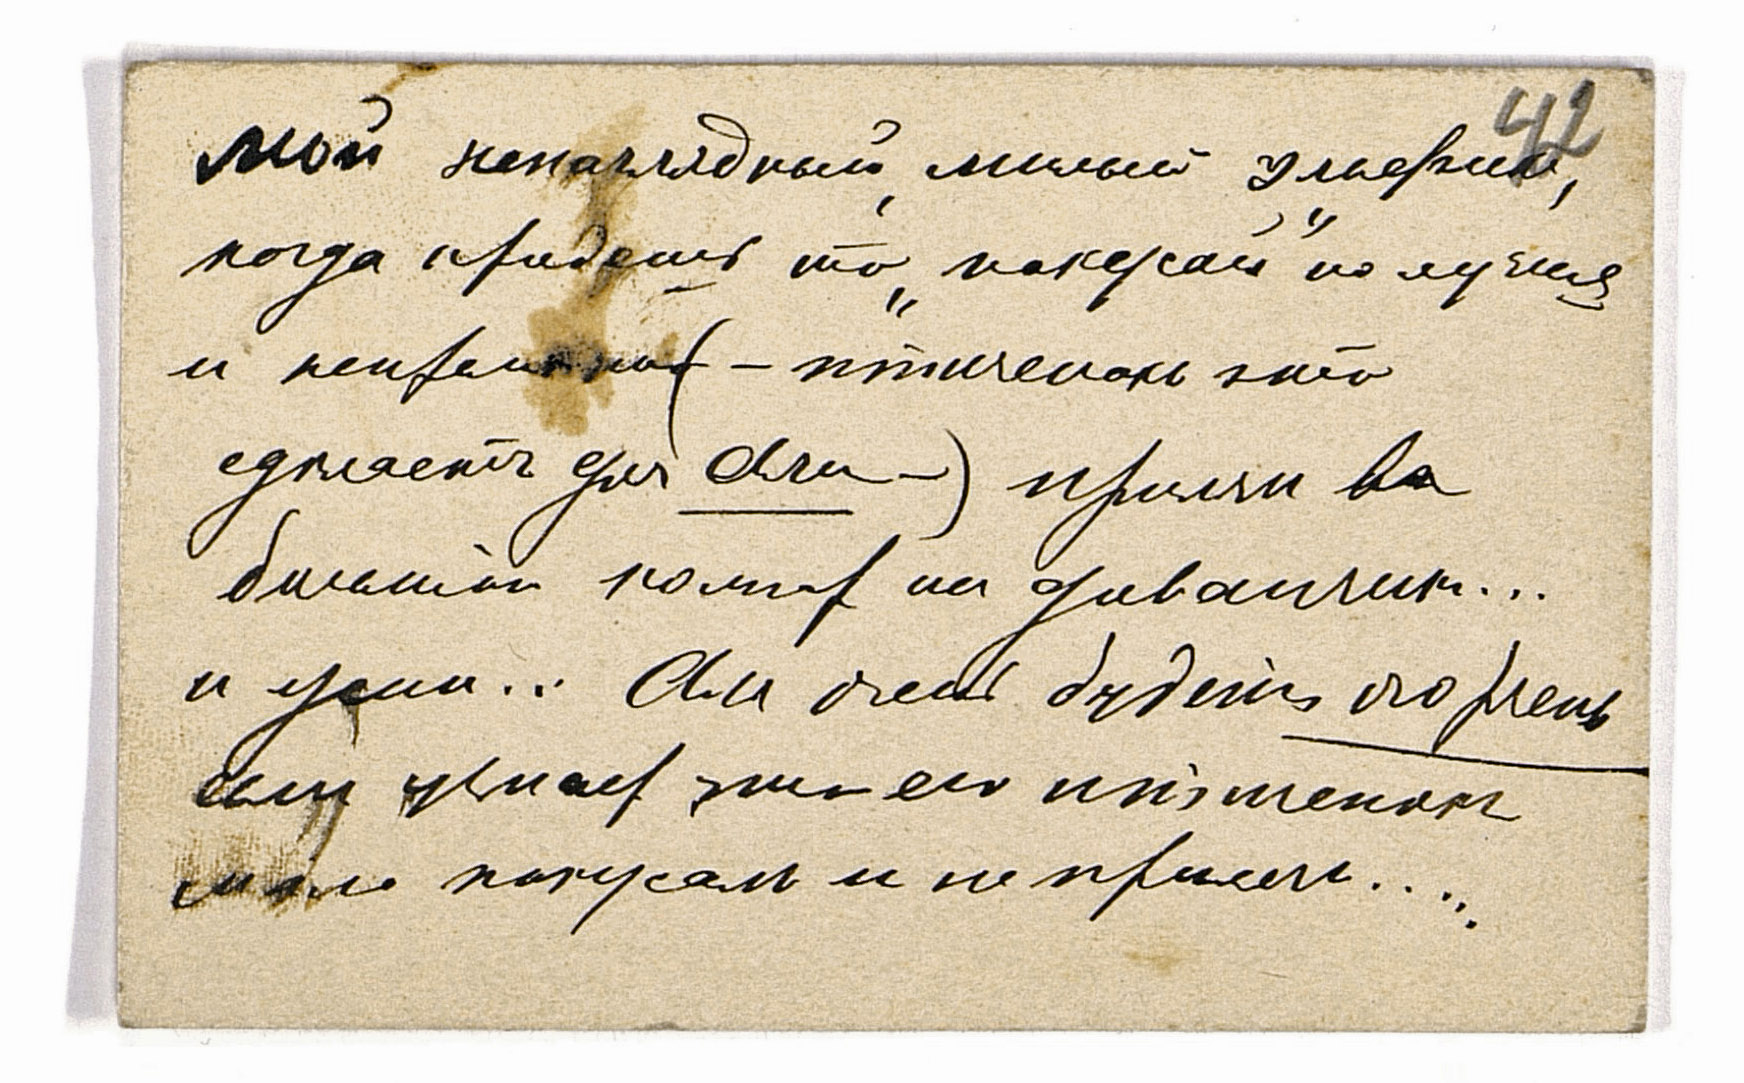 42
Мой ненаглядный, милый
когда придешь то „покусай" получше
и непременно (— птиченокъ это
сделаетъ для Али —) приляг на
большой комнат на диванчик...
и усни... Аля очень будетъ огорчень
если узнает что его птиченокъ
мало покусалъ и не прилегъ....